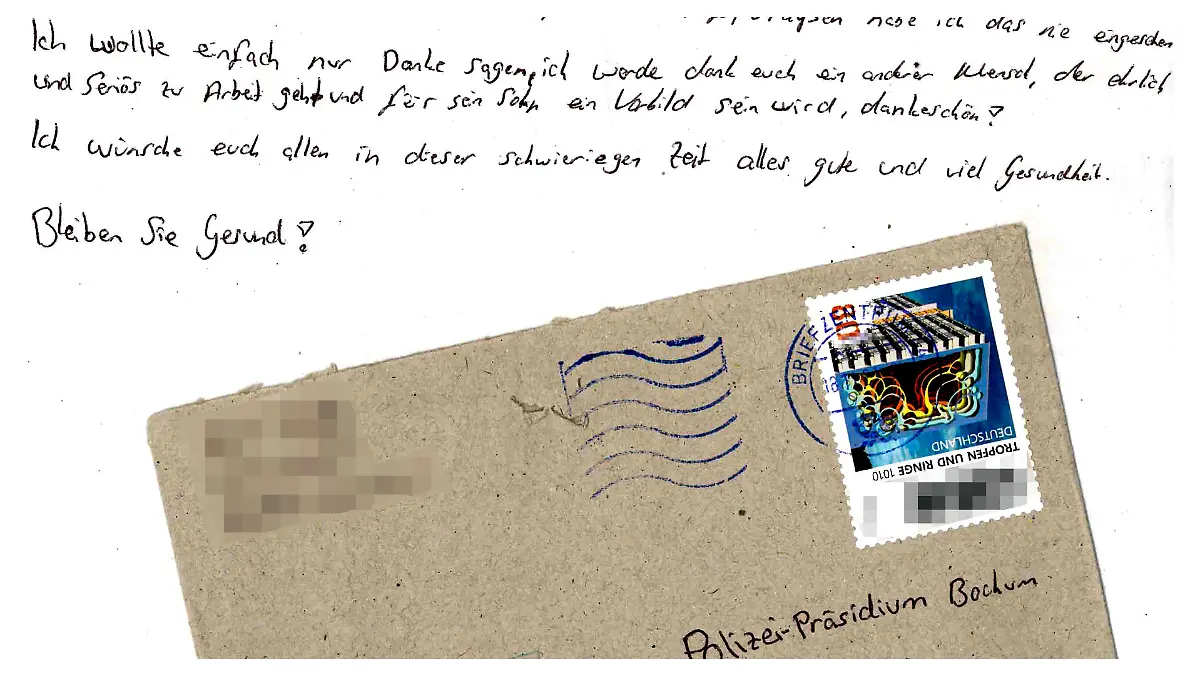 habe ich das nie eingesehen
Ich wollte einfach nur Danke sagen, ich werde dank euch ein anderer Mensch, der ehrlich
und Seriös zu Arbeit geht und für sein Sohn ein Vorbild sein wird, dankeschön!
Ich wünsche euch allen in dieser schwieriegen Zeit alles gute und viel Gesundheit.
Bleiben Sie Gesund!
BRIEFZENTRUM
80
DEUTSCHLAND
TROPFEN UND RINGE 1010
Polizei-Präsidium Bochum